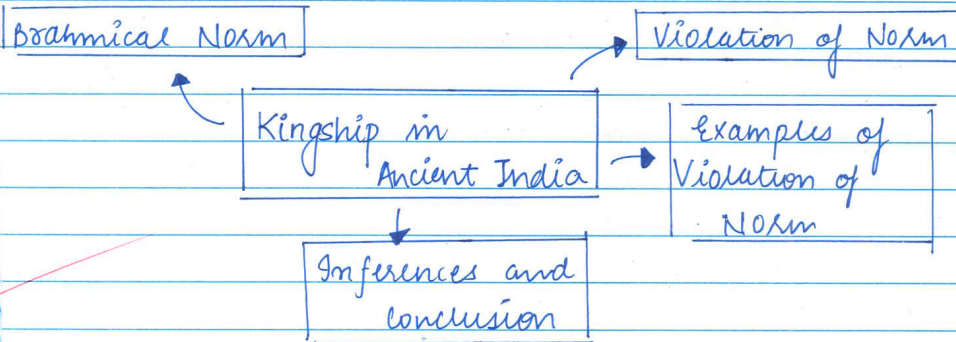 Brahmical Norm
Violation of Norm
Kingship in
Ancient India
Examples of
Violation of
Norm
Inferences and
Conclusion